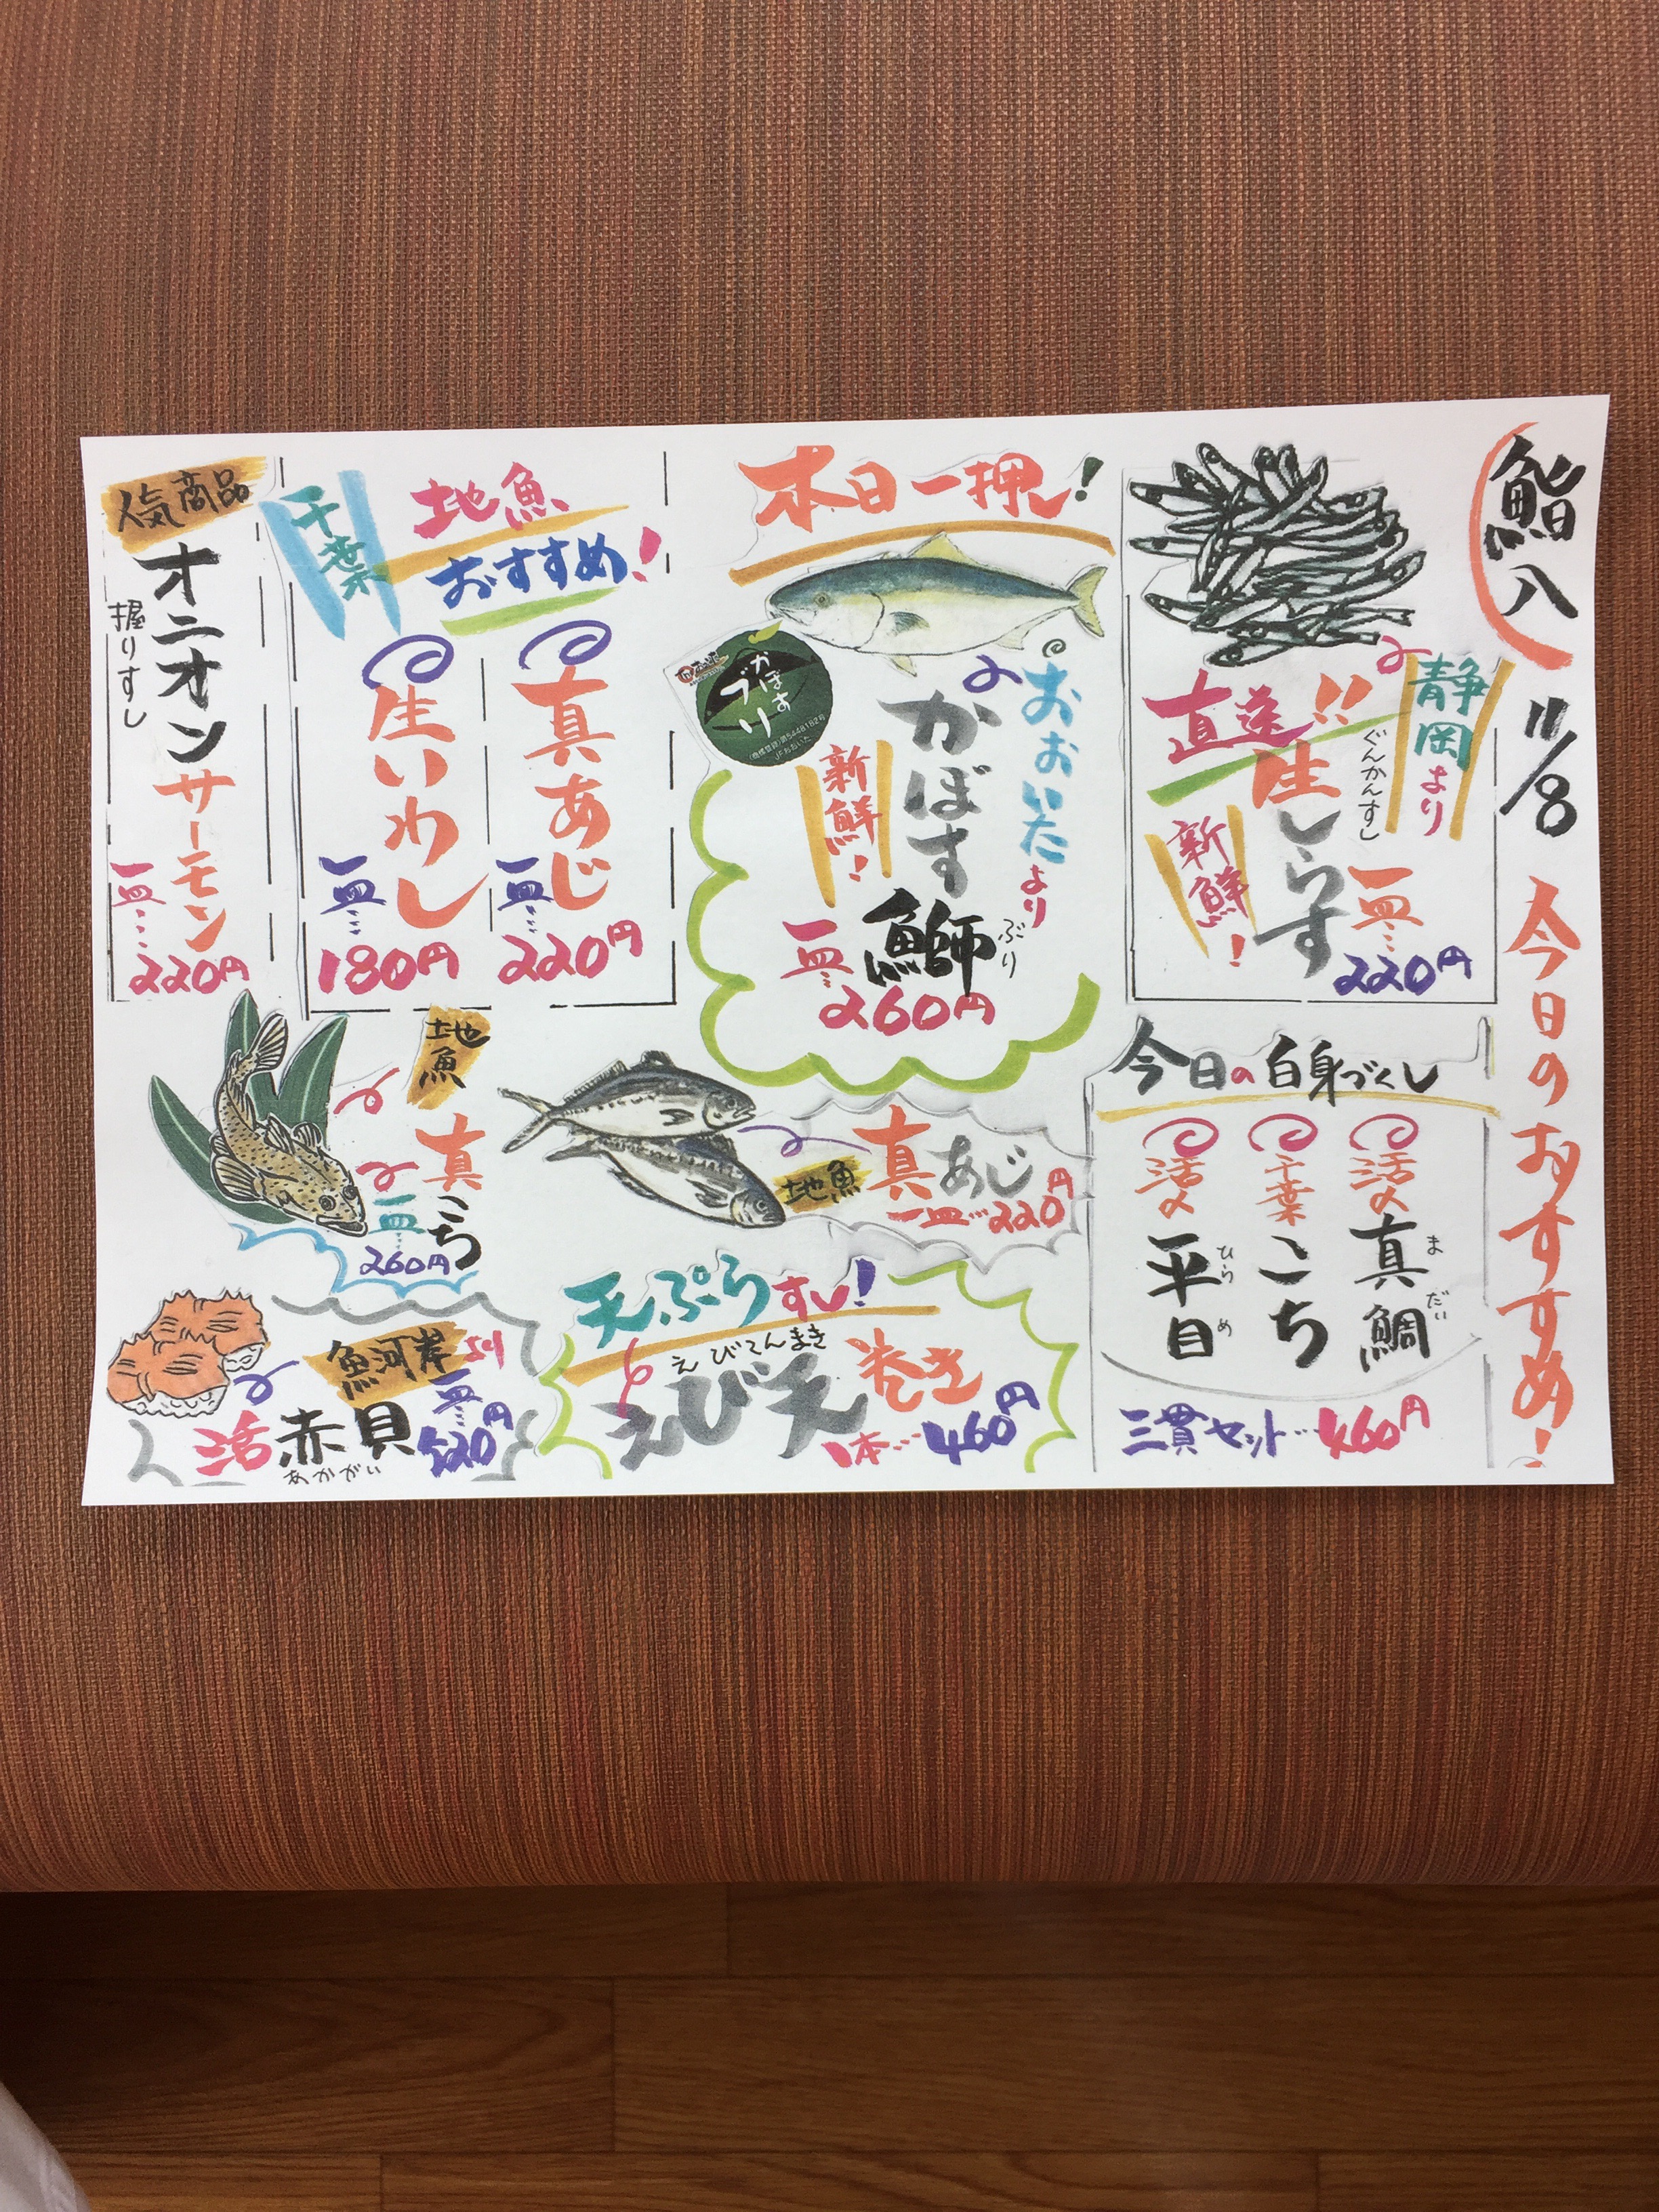 鮨八
11/8
今日のおすすめ!
静岡より
直送!!
生しらす
ぐんかんすし
新鮮!
一皿…
220円
本日一押し!
おおいたより
かぼす鰤
ぶり
新鮮!
一皿…
260円
かぼすブリ
(商標登録)第5448182号
JFおおいた
千葉
地魚
おすすめ!
真あじ
一皿…
220円
生いわし
一皿…
180円
人気商品
オニオンサーモン
握りすし
一皿…
220円
今日の白身づくし
活〆
真鯛
まだい
千葉
こち
活〆
平目
ひらめ
三貫セット…460円
地魚
真あじ
一皿…220円
地魚
真こち
一皿…
260円
天ぷらすし!
えびてんまき
えび天巻き
1本…460円
魚河岸より
活赤貝
あかがい
一皿…
520円